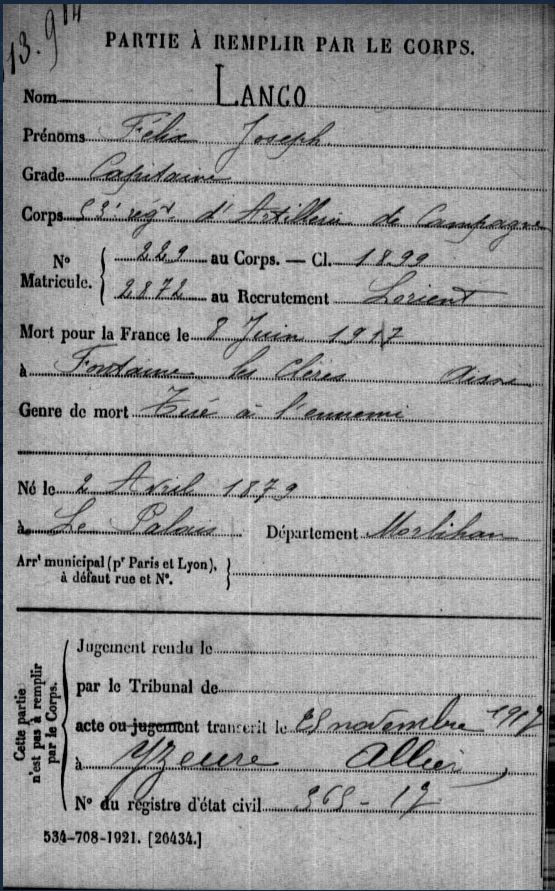 13.914
PARTIE À REMPLIR PAR LE CORPS.
Nom LANCO
Prénoms Félix Joseph
Grade Capitaine
Corps 53e régt d'Artillerie de Campagne
No Matricule. { 229 au Corps. — Cl. 1899
2872 au Recrutement Lorient
Mort pour la France le 8 Juin 1917
à Fontaine les Clères Aisne
Genre de mort Tué à l'ennemi
Né le 2 Avril 1879
à Le Palais Département Morbihan
Arrt municipal (pr Paris et Lyon), à défaut rue et No. }
Cette partie n'est pas à remplir par le Corps.
Jugement rendu le
par le Tribunal de
acte ou jugement transcrit le novembre 1917
à Yzeure Allier
No du registre d'état civil
534-708-1921. [26434.]